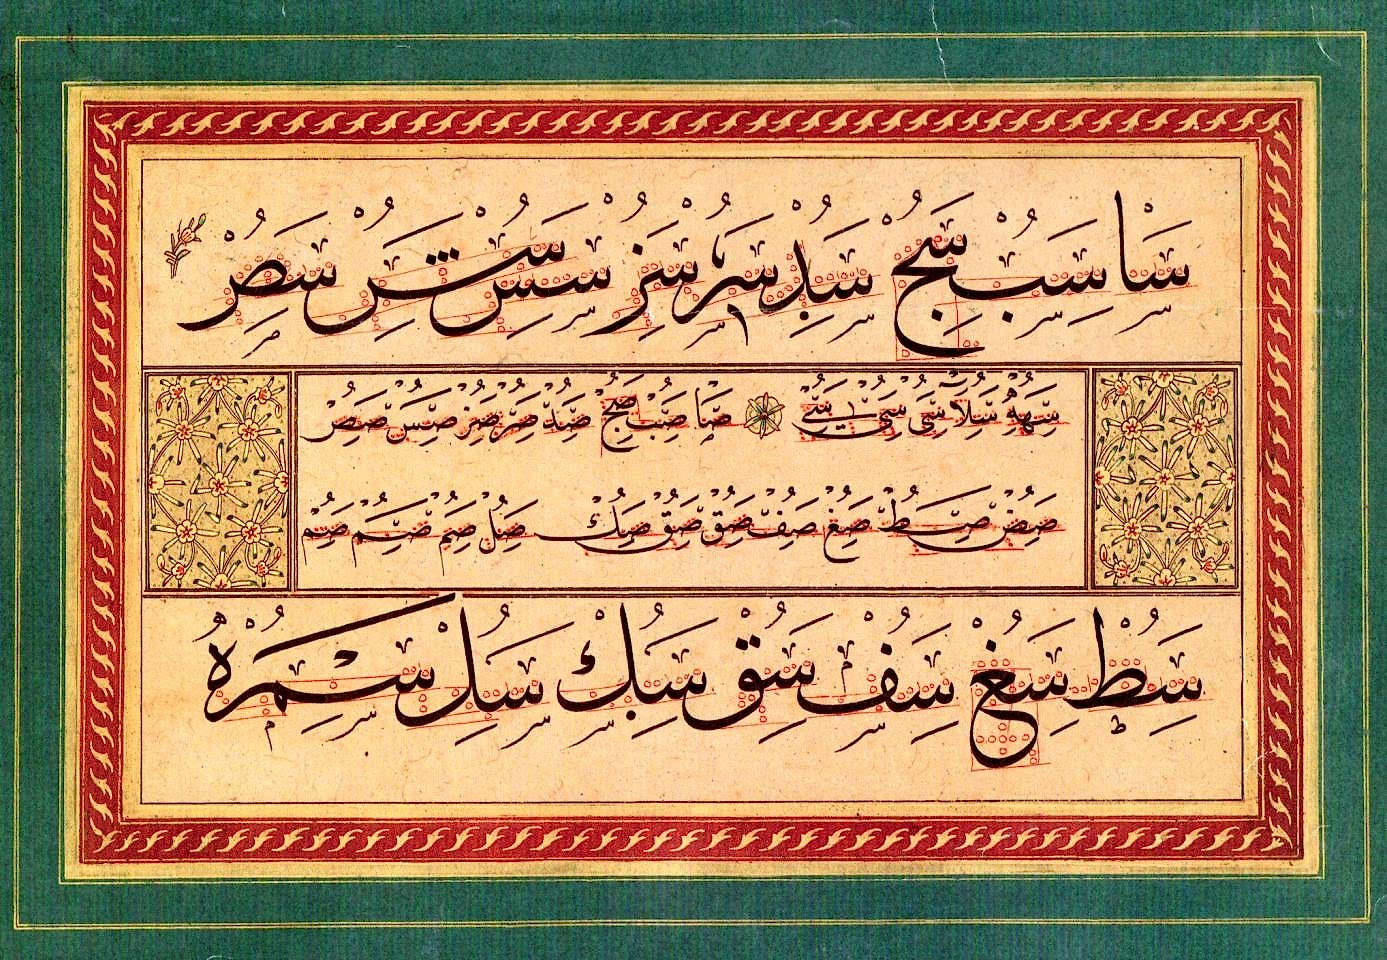 سا سب سج سد سر سر سس سس سص
سهه سلا سى سى سے صا صب صج صد صر صر صس صس صص
صص صط صع صف صق صق صك صل صم صم صم
سط سع سف سق سك سل سم ره